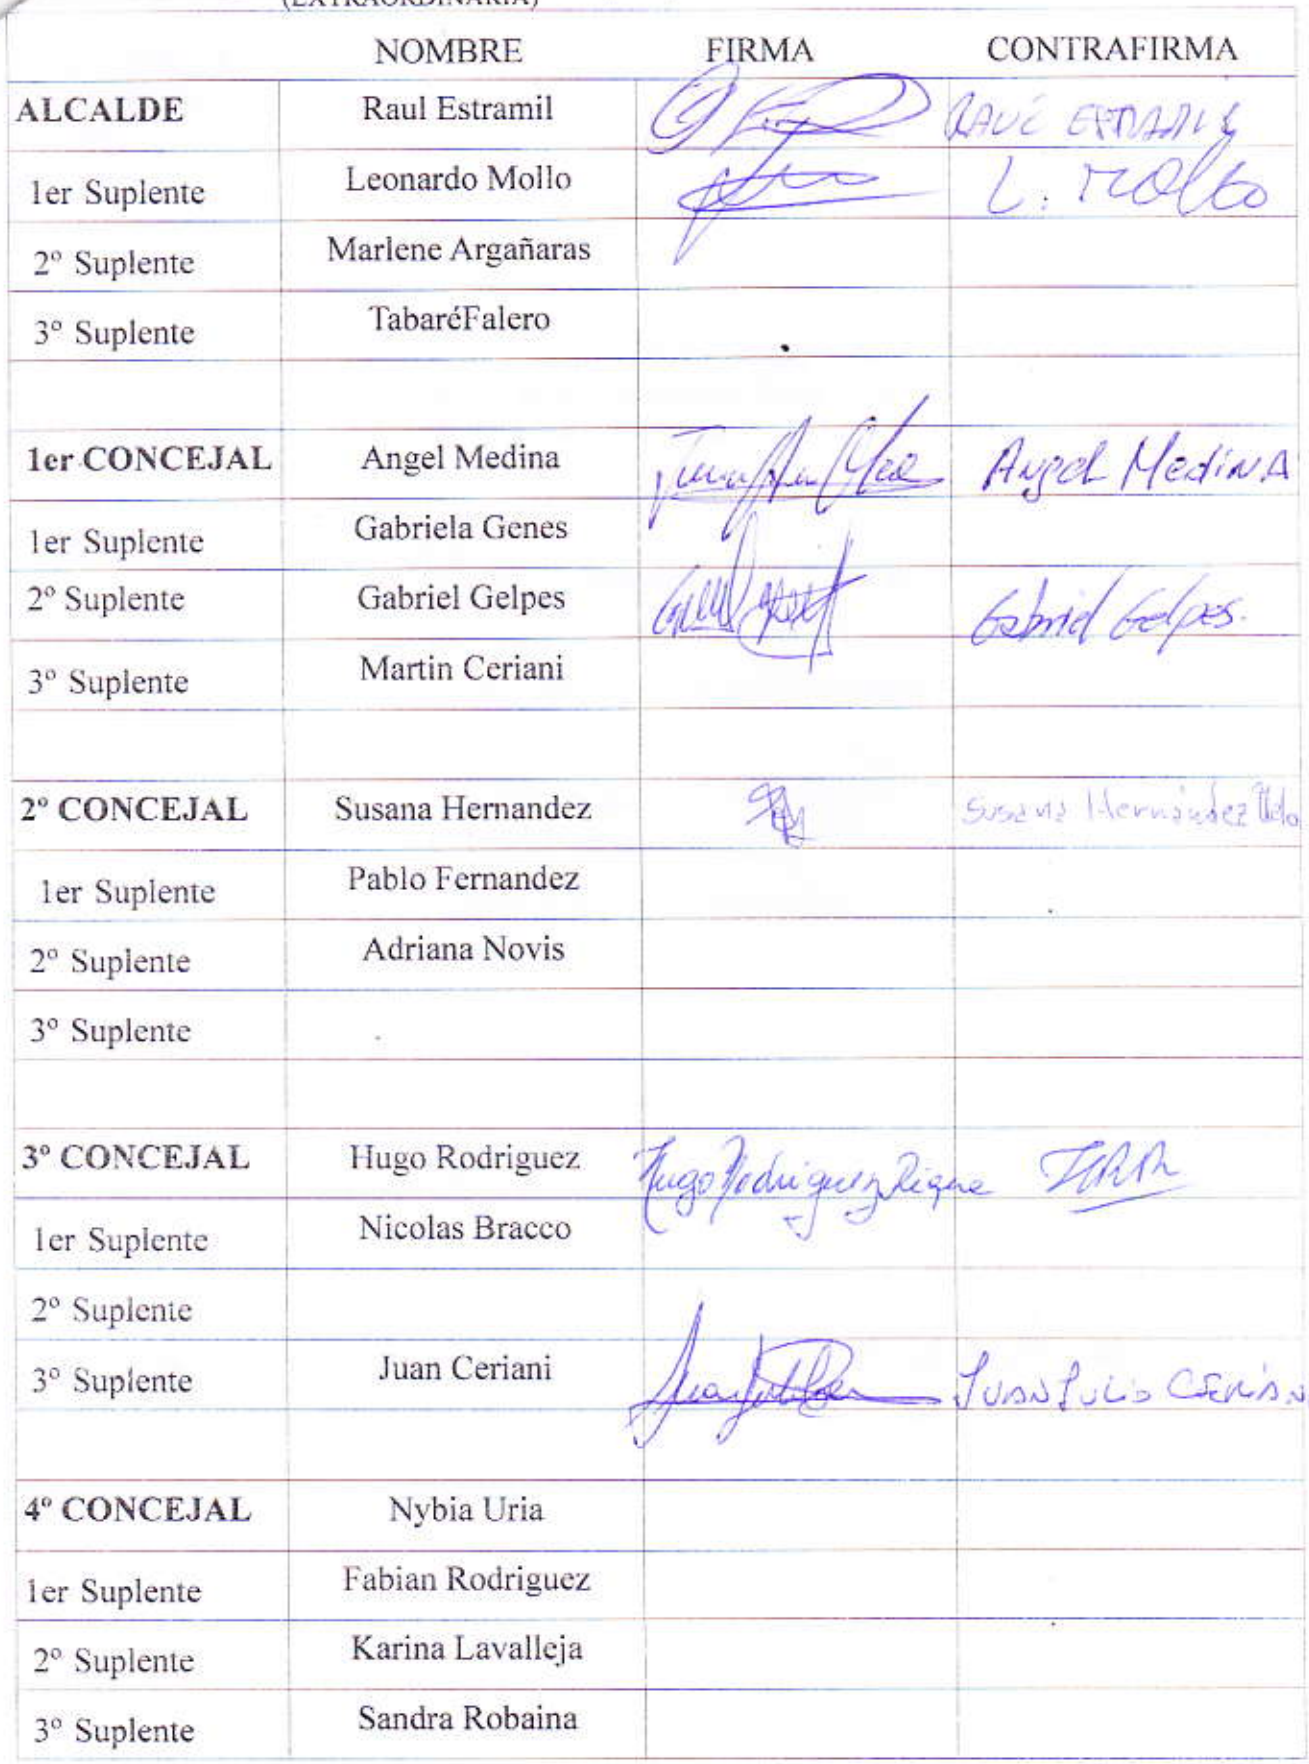 (EXTRAORDINARIA)
NOMBRE FIRMA CONTRAFIRMA
ALCALDE Raul Estramil
1er Suplente Leonardo Mollo L. Mollo
2º Suplente Marlene Argañaras
3º Suplente TabaréFalero
1er CONCEJAL Angel Medina Angel Medina
1er Suplente Gabriela Genes
2º Suplente Gabriel Gelpes Gabriel Gelpes.
3º Suplente Martin Ceriani
2º CONCEJAL Susana Hernandez Susana Hernández
1er Suplente Pablo Fernandez
2º Suplente Adriana Novis
3º Suplente
3º CONCEJAL Hugo Rodriguez Hugo Rodriguez
1er Suplente Nicolas Bracco
2º Suplente
3º Suplente Juan Ceriani JUAN JULIO
4º CONCEJAL Nybia Uria
1er Suplente Fabian Rodriguez
2º Suplente Karina Lavalleja
3º Suplente Sandra Robaina